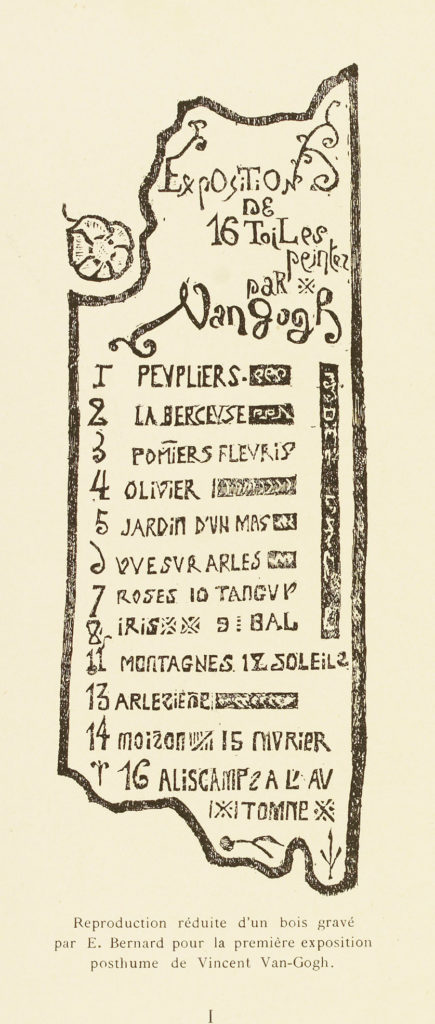 ExpOSiTiON
DE
16 ToiLes
peintes
paR ※
Van gogh
1 PEVPLIERS.
2 LA BERCEVSE
3 POMIERS FLEVRIS
4 OLIVIER
5 JARDIN D'UN MAS
6 VVE SVR ARLES
7 ROSES 10 TANGVY
8 iRiS※※ 9 : BAL
11 MONTAGNES. 12 SOLEILS
13 ARLESIENE
14 MOISON 15 MVRIER
16 ALISCAMPS A L' AV
TOMNE ※
Reproduction réduite d'un bois gravé
par E. Bernard pour la première exposition
posthume de Vincent Van-Gogh.
I